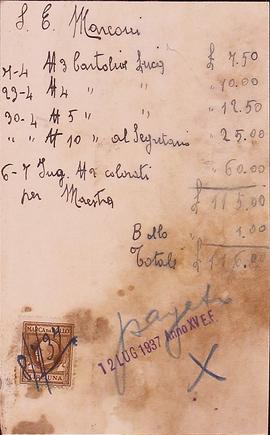 S. E. Marconi
7-4 N 3 Cartoline Luca £ 7.50
23-4 N 4 " " " 10.00
30-4 N 5 " " " 12.50
" " N 10 " al Segretario " 25.00
6-7 Lug. N 2 colorati " 60.00
per Maestra £ 115.00
Bollo " 1.00
Totale £ 116.00
pagato
12 LUG 1937 Anno XV E.F.
X
MARCA DA BOLLO
UNA